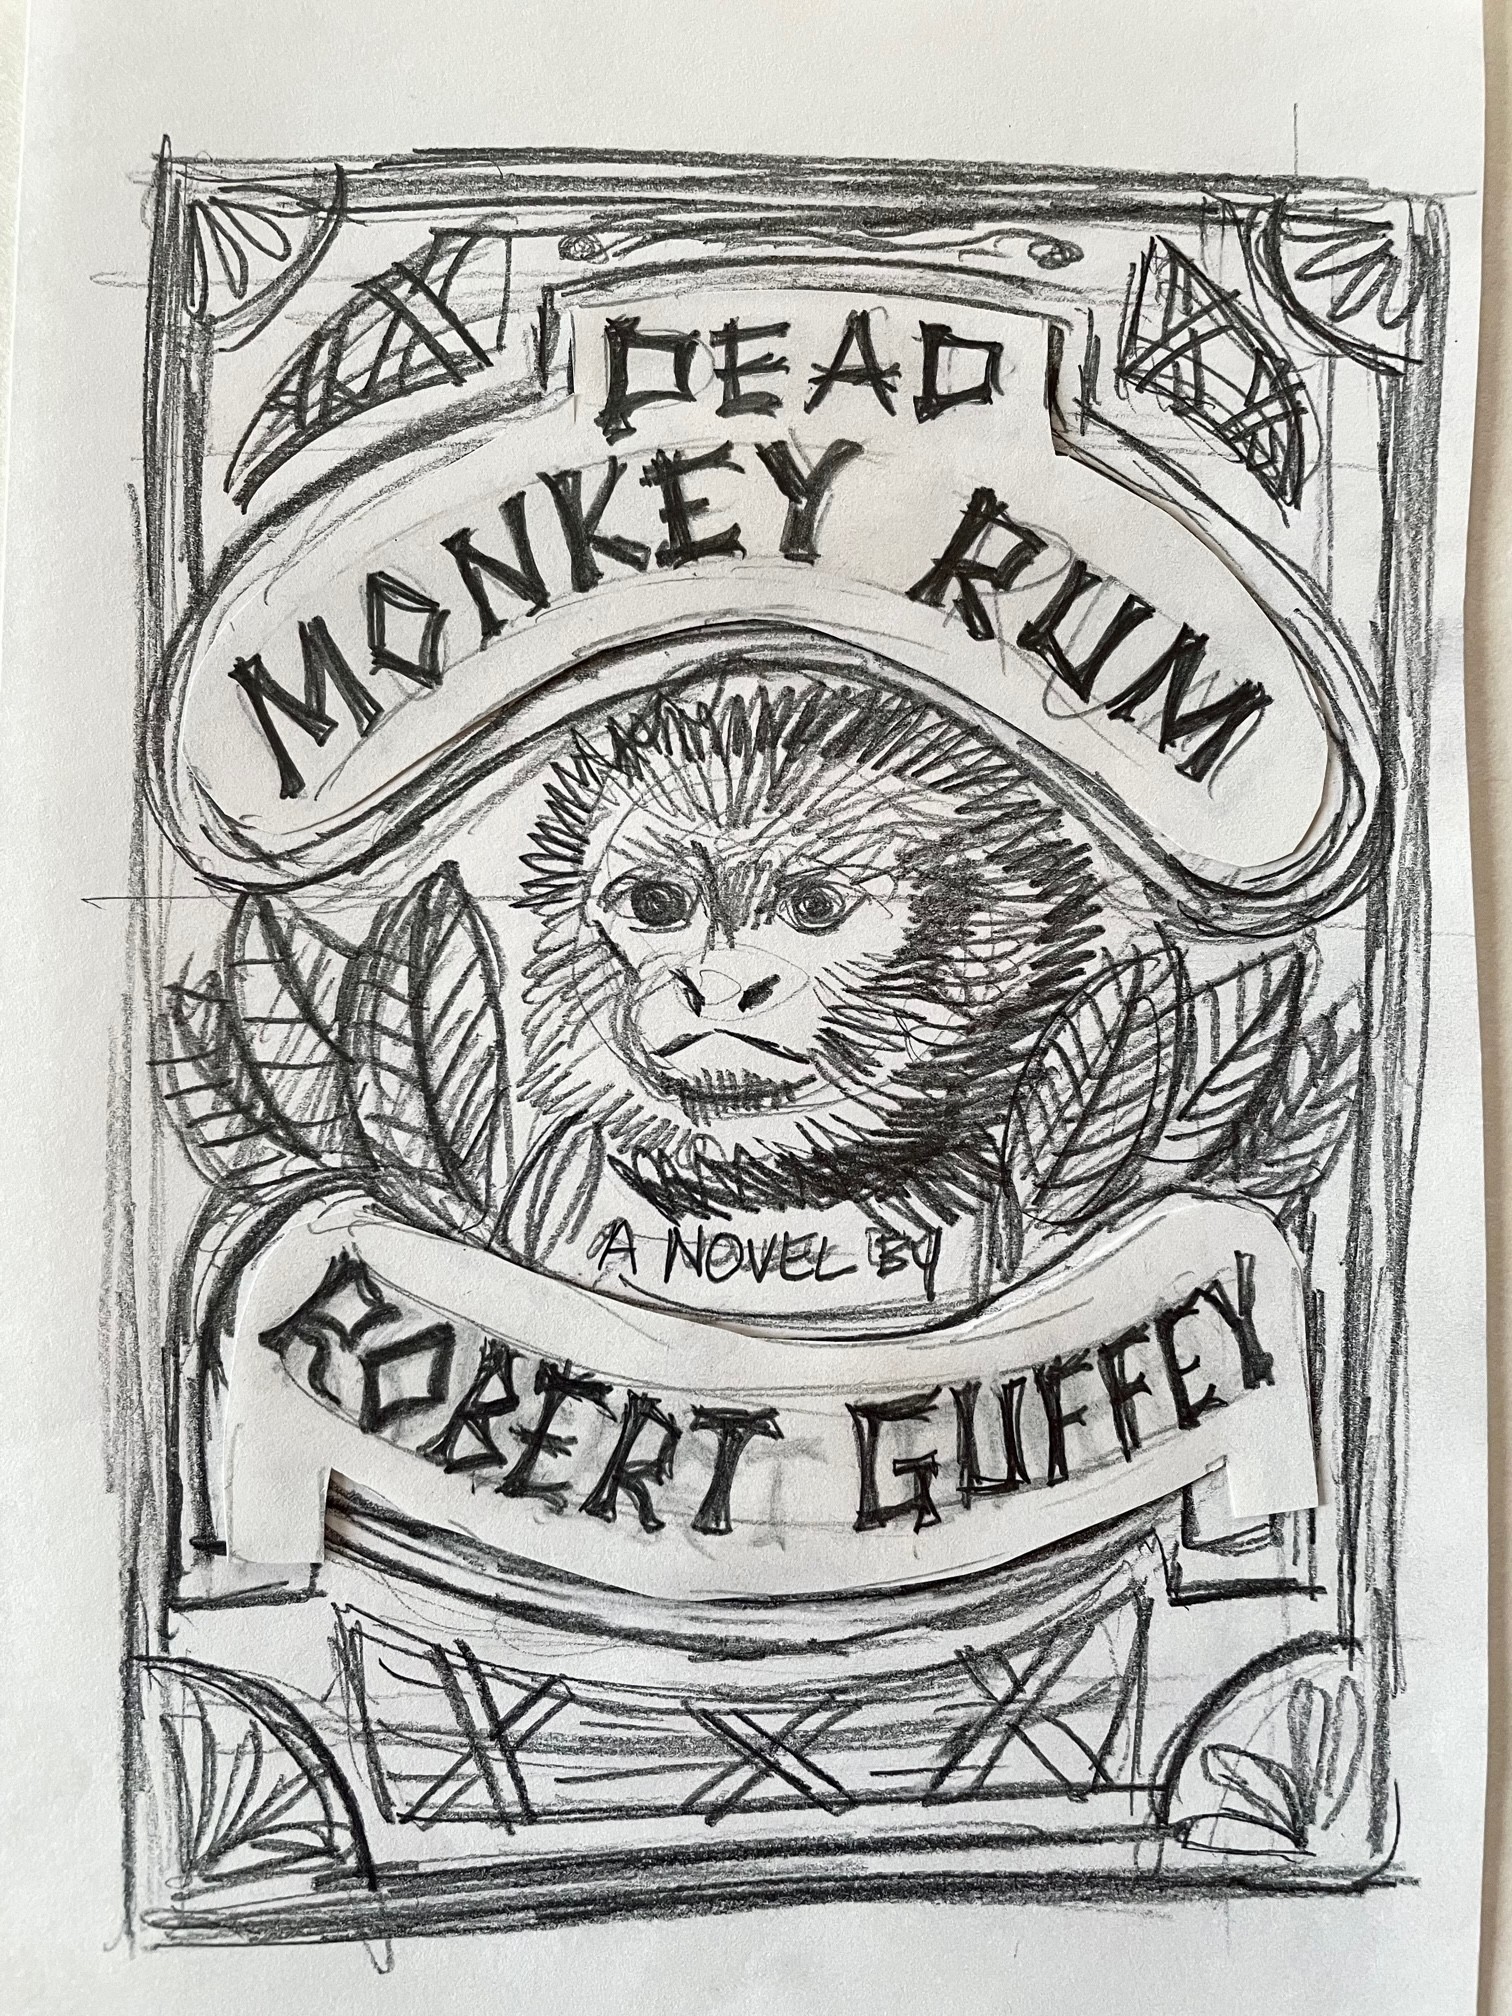 DEAD
MONKEY RUM
A NOVEL BY
ROBERT GUFFEY